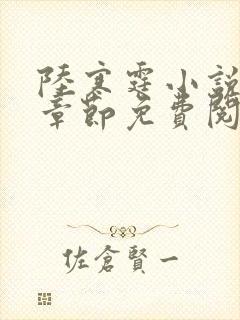 陸寒霆小說
章節免費閱
佐倉賢一